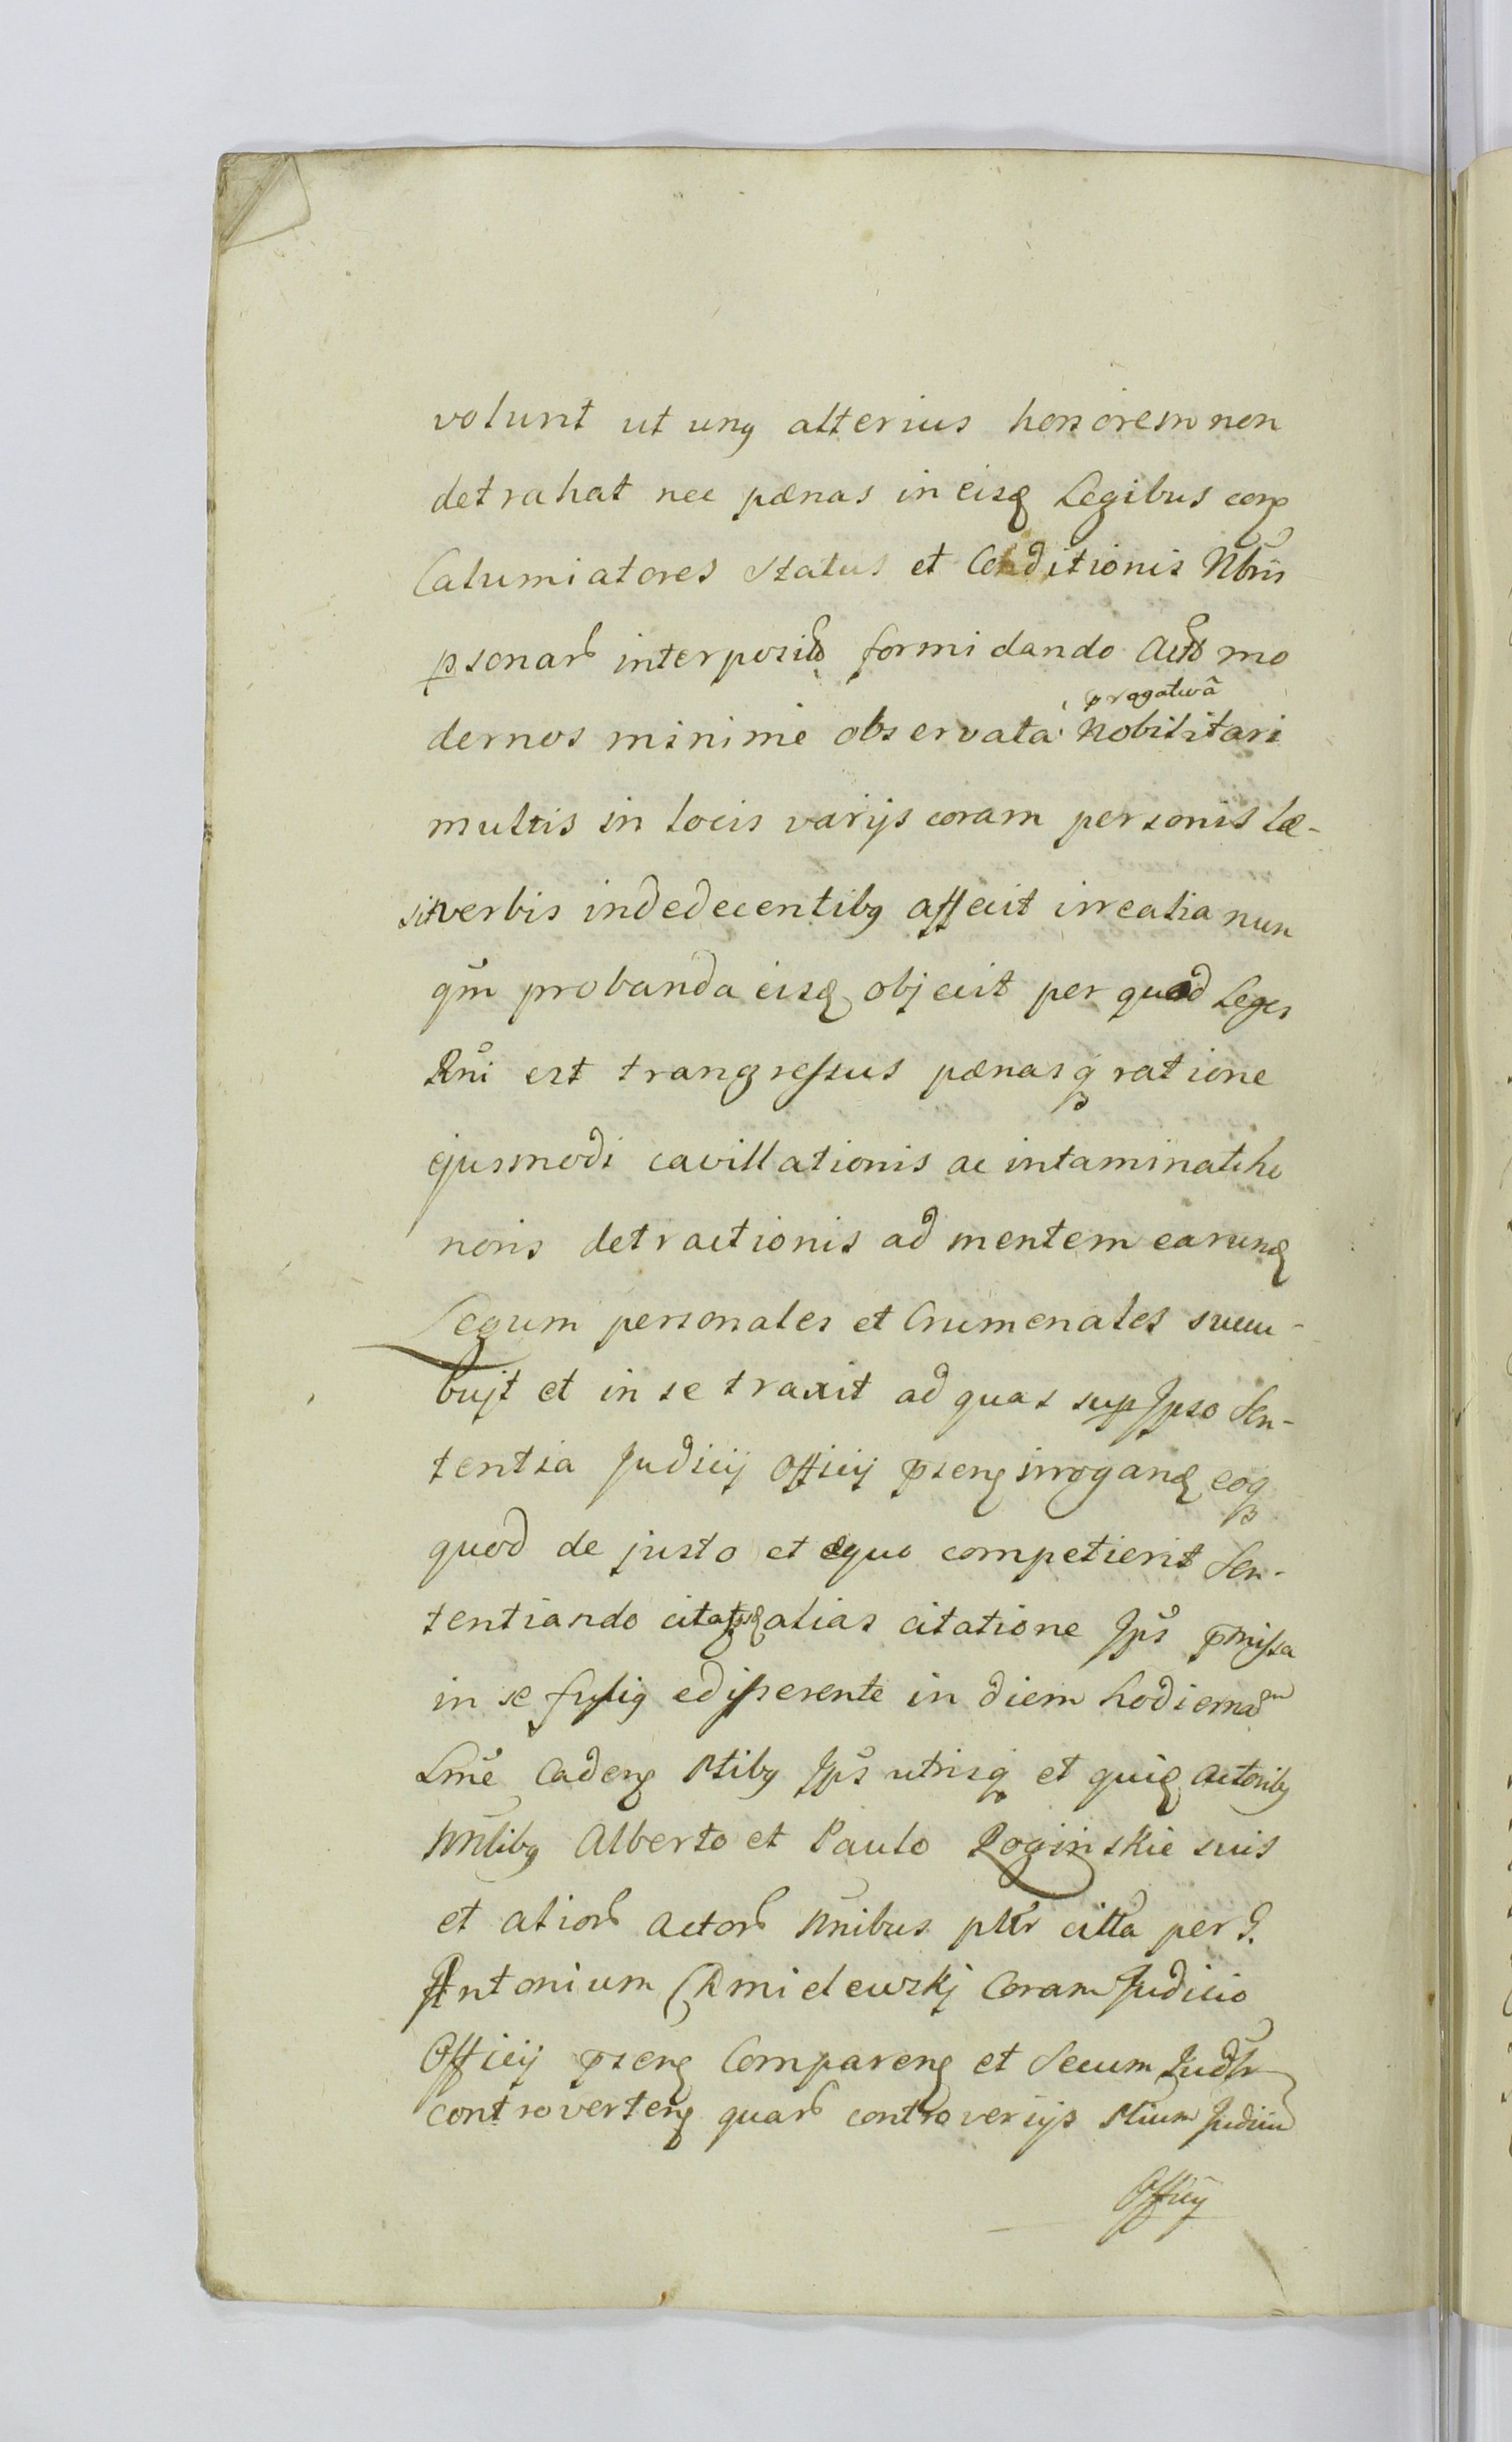 volunt ut unq alterius honorem non
detrahat nec pœnas in eisq Legibus
Calumiatores Status et Conditionis Nbris
psonarƀ interposito formidando Actō mo
prgativā
dernos minimè observatâ Nobilitari
multis in locis varijs coram personis læ-
sit verbis indedecentibq affecit irrealia nun
qm̃ probanda eisq objecit per quod Leges
Rñi est trangressus pœnasq ratione
ejusmodi cavillationis ac intaminati ho
noris detractionis ad mentem earunq
Legum personales et Crumenales succu-
bujt et in se traxit ad quas sup Ipso Sen-
tentia Judicij Officij pseng irrogang eoq
quod de justo et æquo competierit Sen-
tentiando alias citatione Ips̃ p̃missa
in se fusig edisserente in diem hodiernam
Lmẽ Cadeng Ptibq Ips̃ utrisq et quiq Actoribq
Nñlibq Alberto et Paulo Roginskie suis
et aliorƀ Actorƀ Nñibus pltr citta per G.
Antonium Chmielewskj Coram Judicio
Officij pseng Compareng et Secum Judlr
controverteng quarƀ controversijs Ptium Judiciũ
Officij